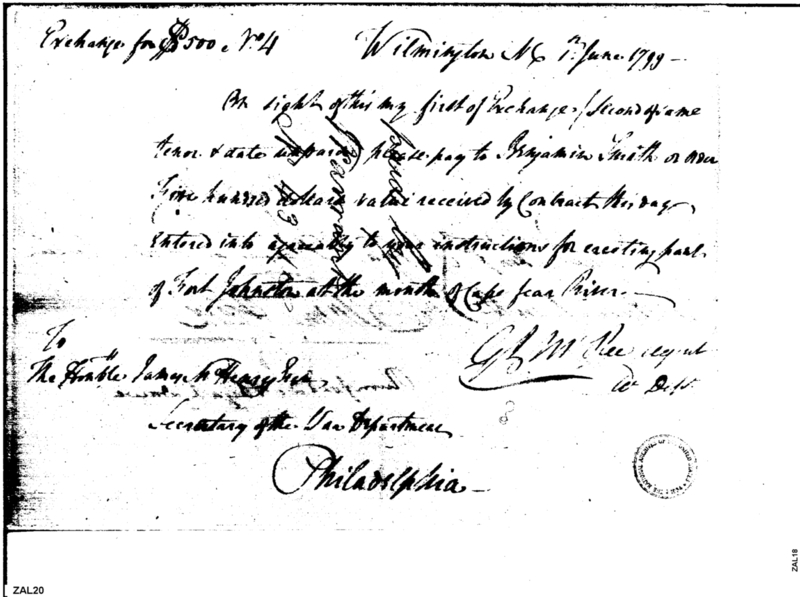 Exchange for $500, No. 4
Wilmington NC 1st June 1799 –
On sight of this my first of Exchange / Second of same
tenor & date unpaid / please pay to Benjamin Smith or order
Five hundred dollars value received by Contract this day
Entered into agreeably to your instructions for erecting part
of Fort Johnston at the mouth of Cape Fear River –
G J McRee agent
W Dept.
To
The Honble James McHenry Esqr
Secretary of the War Department
Philadelphia –
Warrant
ZAL20
ZAL18